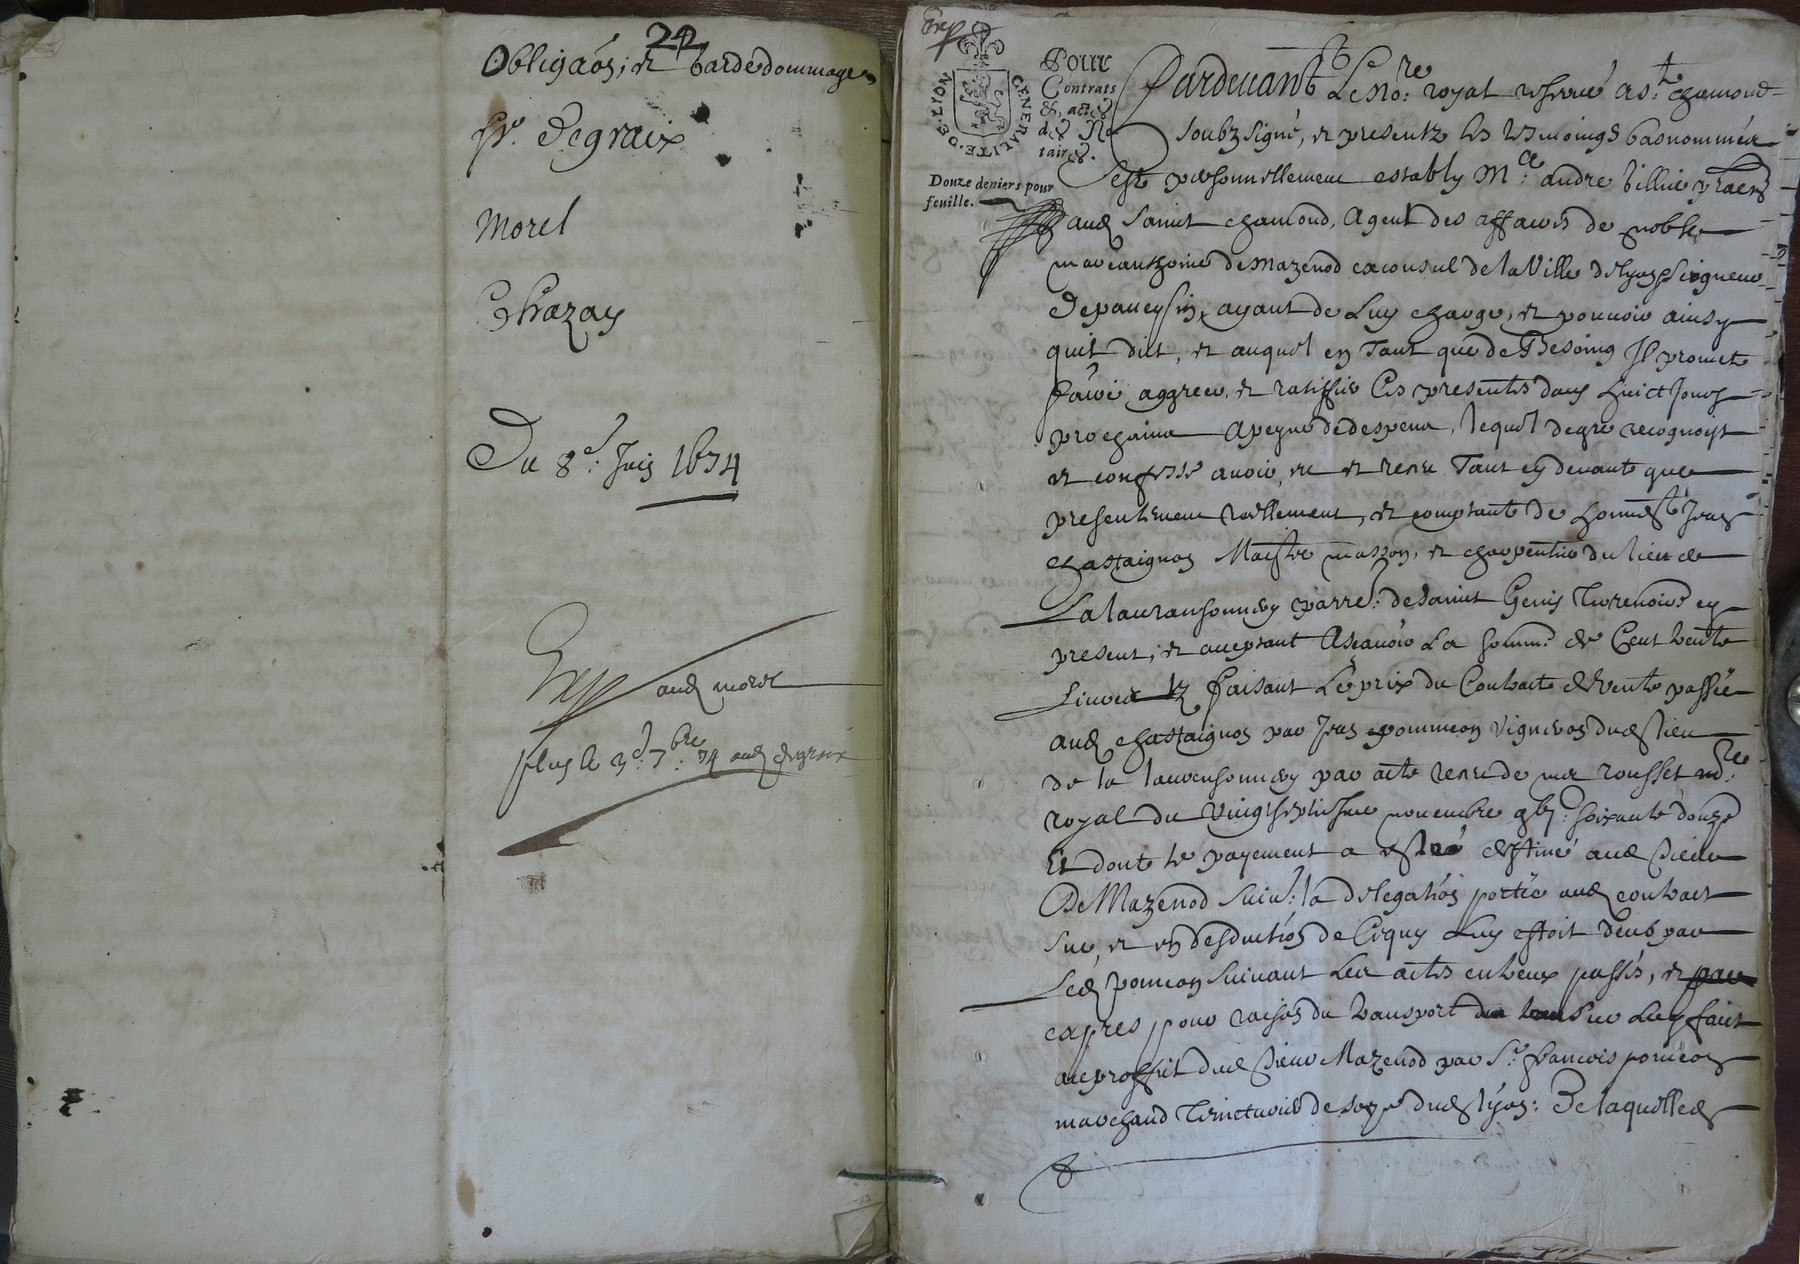 22
Obligaôn, et gardedommage
Sr. Degraix
Morel
Chazay
Du 8e. Juin 1674
Exp aud morel
plus le 3e. 7bre. 74 aud degraix
Exp
GENERALITE·DE·LYON
Pour
Contrats
&, actes
des No
taires.
Douze deniers pour
feuille.
Pardevant Le nore. royal reservé a st. chamond
soubzsigné, et presentz les tesmoings basnommés
c'est personnellement estably Me. andre
aud saint chamond, Agent des affaires de noble
marcanthoine de mazenod exconsul de la Ville de lyon, seigneur
de paveysin, ayant de Luy charge, et pouvoir ainsy
quil dict, et auquel en Tant que de Besoing Il promet
faire aggreer, et ratiffier Ces presentes dans huict Jours
prochains Apeyne de despens, lequel de gré recognoist
et confesse avoir, eu et receu Tant cy devant que
presentement reellement, et comptant de honneste Jean
chastaignon Maistre masson, et charpentier du lieu de
La lauransonnery parre. de saint Genis Terrenoire cy
present, et acceptant Asscavoir La somme de Cent trente
Livres tz faisant Le prix du Contract de vente passée
aud chastaignon par Jean poinicon vigneron dud lieu
de la lauransonnery par acte receu de me rousset nore.
royal du vingtseptiesme novembre gbic. soixante douze
Et dont le payement a esté destiné aud sieur
De Mazenod suivt. la delegaôn portée aud contract
sur, et en desduction de Cequy Luy estoit deub par
Led poinicon suivant Les actes entreux passés, et par
exprès pour raison du transport sur Luy faict
au proffict dud sieur Mazenod par Sr. francois poinicon
marchand Teincturier de soye dud lyon: De laquelle